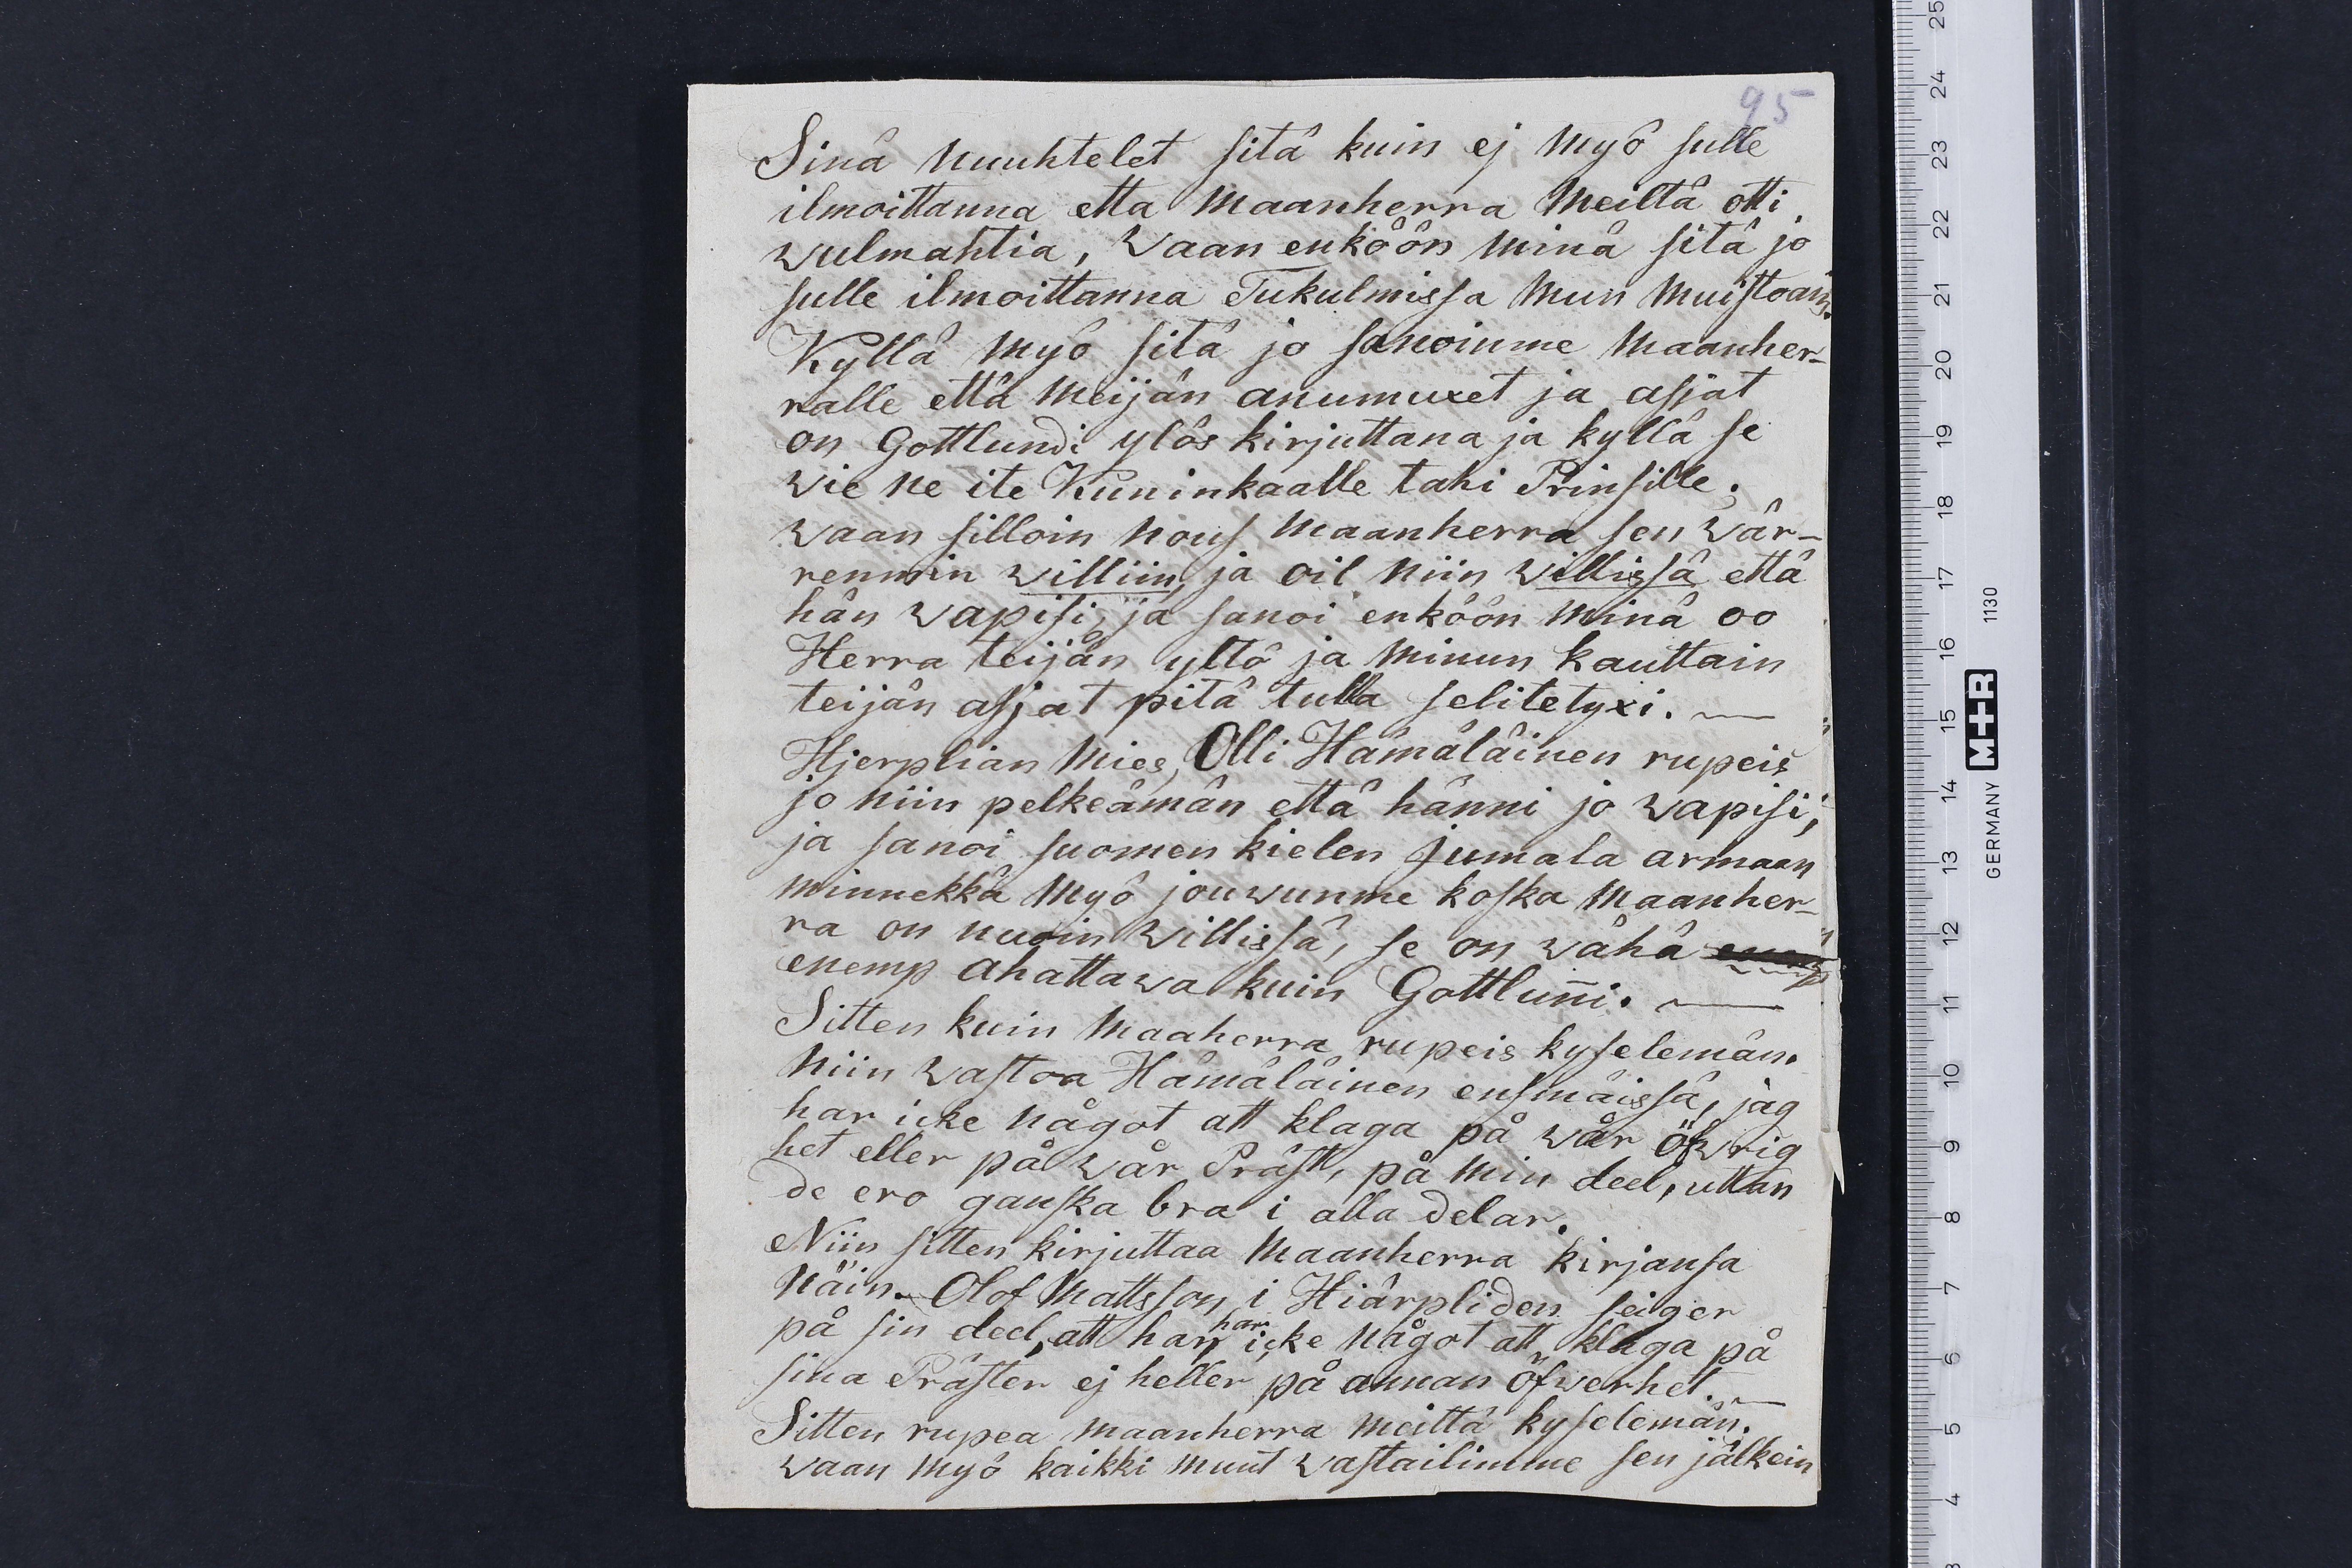 95
Sinä nuuhtelet sitä kuin ej myö sulle
ilmoittanna etta maanherra meiltä otti
wulmahtia, waan enköön minä sitä jo
sulle ilmoittanna Tukulmissa mun muistoain.
Kyllä myö sitä jo sanoimme maanher-
ralle että meijän anumuxet ja asjat
on Gottlundi ylös kirjuttana ja kyllä se
wie ne ite Kuninkaalle tahi Prinsille;
waan silloin nous maanherra sen wär-
remmin williin, ja oil niin willissä että
hän wapisi, ja sanoi enköön minä oo
Herra teijän yltö ja minun kauttain
teijän asjat pitä tulla selitetyxi. —
Hjerplian mies, Olli Hämäläinen rupeis
jo niin pelkeämän että hänni jo wapisi;
ja sanoi suomen kielen Jumala armaan
minnekkä myö jouwumme koska maanher-
ra on nuoin willissä, se on wähä
enemp ahattawa kuin Gottluñi. —
Sitten kuin maaherra rupeis kyselemän.
niin wastoa Hämäläinen ensmäissä, jag
har icke något att klaga på wår öfwrig
het eller på wår Präst, på min deel, uttan
de ero ganska bra i alla delar.
Niin sitten kirjuttaa maanherra kirjansa
näin. Olof Mattsson i Hiärpliden seiger
på sin deel, att han har icke något att klaga på
sina Präster ej heller på annan öfwerhet. —
Sitten rupea maanherra meittä kyselemän.
waan myö kaikki muut wastailimme sen jälkein
25
24
23
22
21
20
19
18
17
16
15
14
13
12
11
10
9
8
7
6
5
4
GERMANY M+R 1130